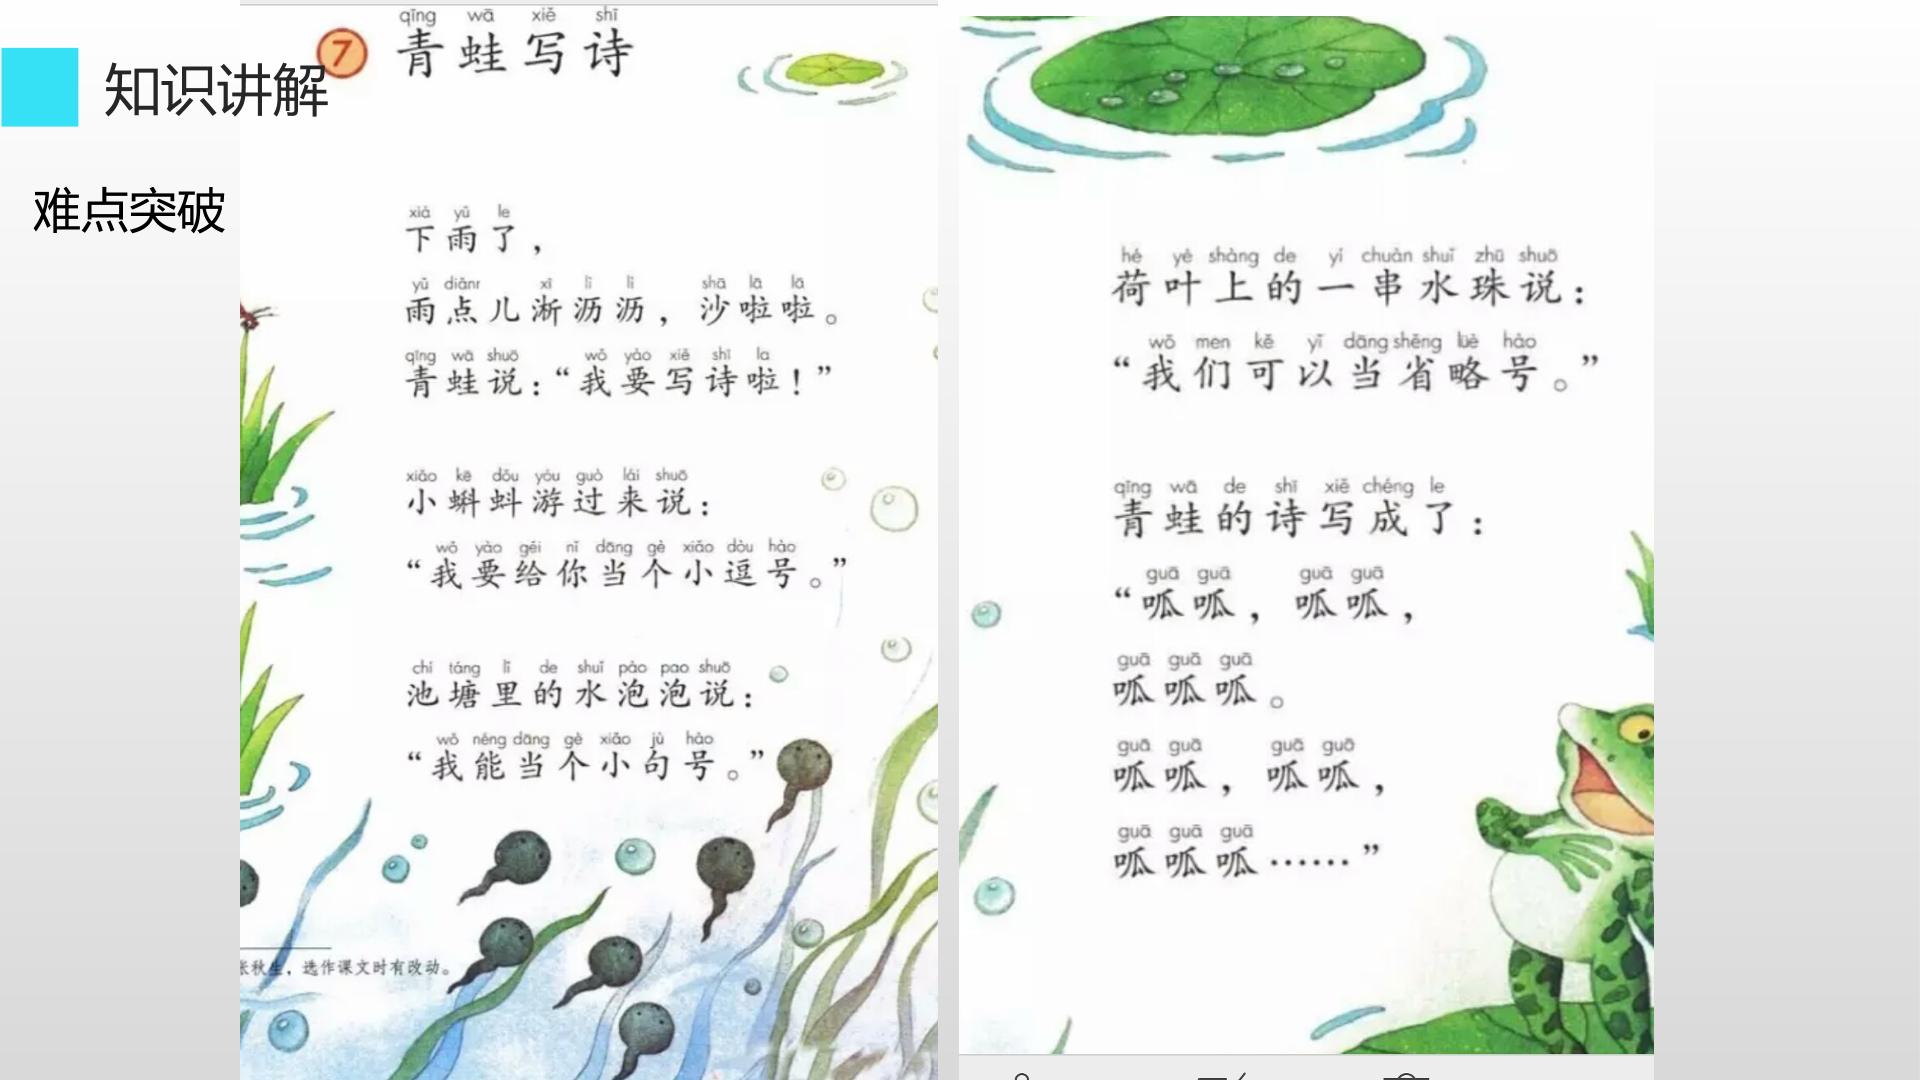 知识讲解
难点突破
7
qīng wā xiě shī
青蛙写诗
xià yǔ le
下雨了，
yǔ diǎnr xī lì lì shā lā lā
雨点儿淅沥沥，沙啦啦。
qīng wā shuō wǒ yào xiě shī la
青蛙说：“我要写诗啦！”
xiǎo kē dǒu yóu guò lái shuō
小蝌蚪游过来说：
wǒ yào gěi nǐ dāng gè xiǎo dòu hào
“我要给你当个小逗号。”
chí táng lǐ de shuǐ pào pao shuō
池塘里的水泡泡说：
wǒ néng dāng gè xiǎo jù hào
“我能当个小句号。”
张秋生，选作课文时有改动。
hé yè shàng de yí chuàn shuǐ zhū shuō
荷叶上的一串水珠说：
wǒ men kě yǐ dāng shěng lüè hào
“我们可以当省略号。”
qīng wā de shī xiě chéng le
青蛙的诗写成了：
guā guā guā guā
“呱呱，呱呱，
guā guā guā
呱呱呱。
guā guā guā guā
呱呱，呱呱，
guā guā guā
呱呱呱……”